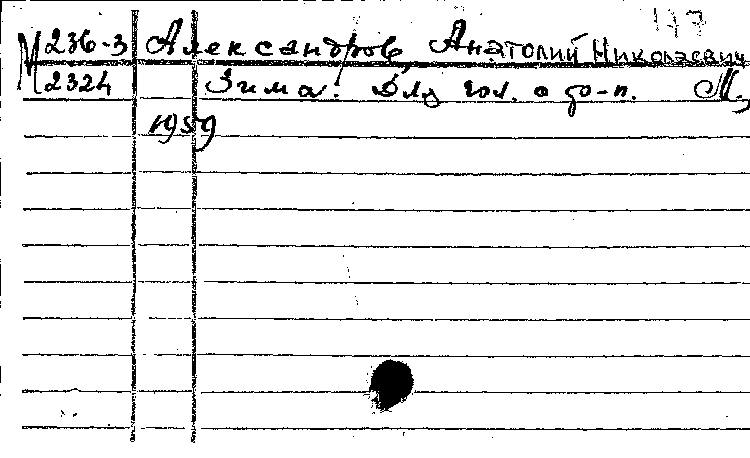 177
М 236-3 Александров, Анатолий Николаевич
2324 Зима. Для гол. с фо-п. М.,
1959